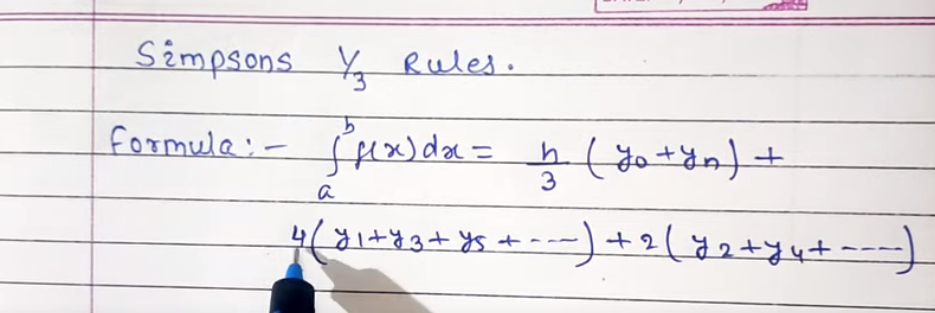 Simpsons 1/3 Rules.
Formula:- ∫ₐᵇ f(x)dx = h/3 (y₀+yₙ) +
4(y₁+y₃+y₅+----)+2(y₂+y₄+----)